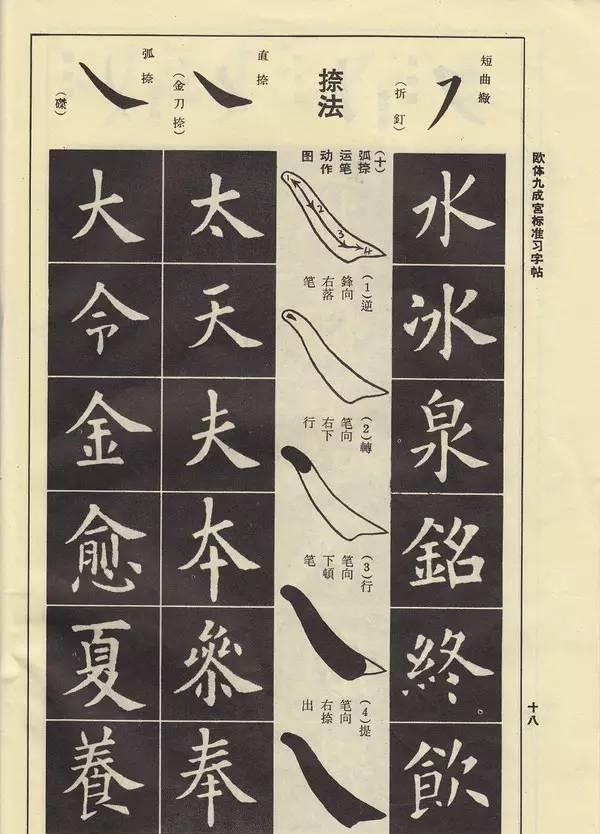 欧体九成宫标准习字帖
十八
短曲撇
（折釘）
水
冰
泉
銘
終
飲
捺法
（十）弧捺
运笔
动作
图
1
2
3
4
（1）逆
鋒向
右落
笔
（2）轉
笔向
右下
行
（3）行
笔向
下頓
笔
（4）提
笔向
右捺
出
直捺
（金刀捺）
太
天
夫
本
叅
奉
弧捺
（磔）
大
令
金
愈
夏
養